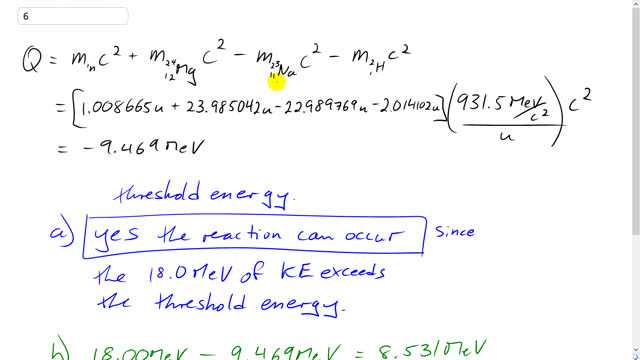 6
Q = m₁ₙc² + m²⁴₁₂Mg c² − m²³₁₁Na c² − m²₁H c²
= [1.008665u + 23.985042u − 22.989769u − 2.014102u] (931.5 MeV/c² / u) c²
= −9.469 MeV
threshold energy.
a) yes the reaction can occur since
the 18.0 MeV of KE exceeds
the threshold energy.
b) 18.00 MeV − 9.469 MeV = 8.531 MeV